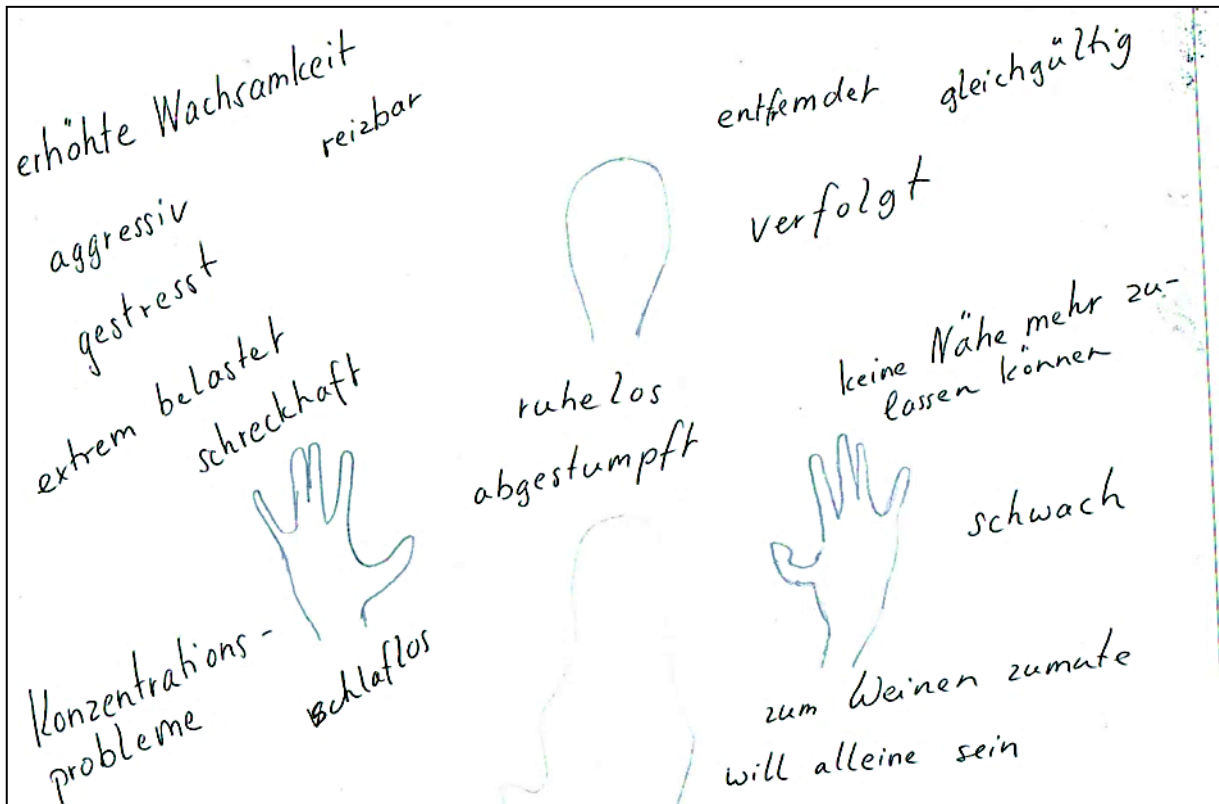 erhöhte Wachsamkeit
reizbar
aggressiv
gestresst
extrem belastet
schreckhaft
Konzentrations-
probleme
schlaflos
ruhelos
abgestumpft
entfremdet
gleichgültig
verfolgt
keine Nähe mehr zu-
lassen können
schwach
zum Weinen zumute
will alleine sein